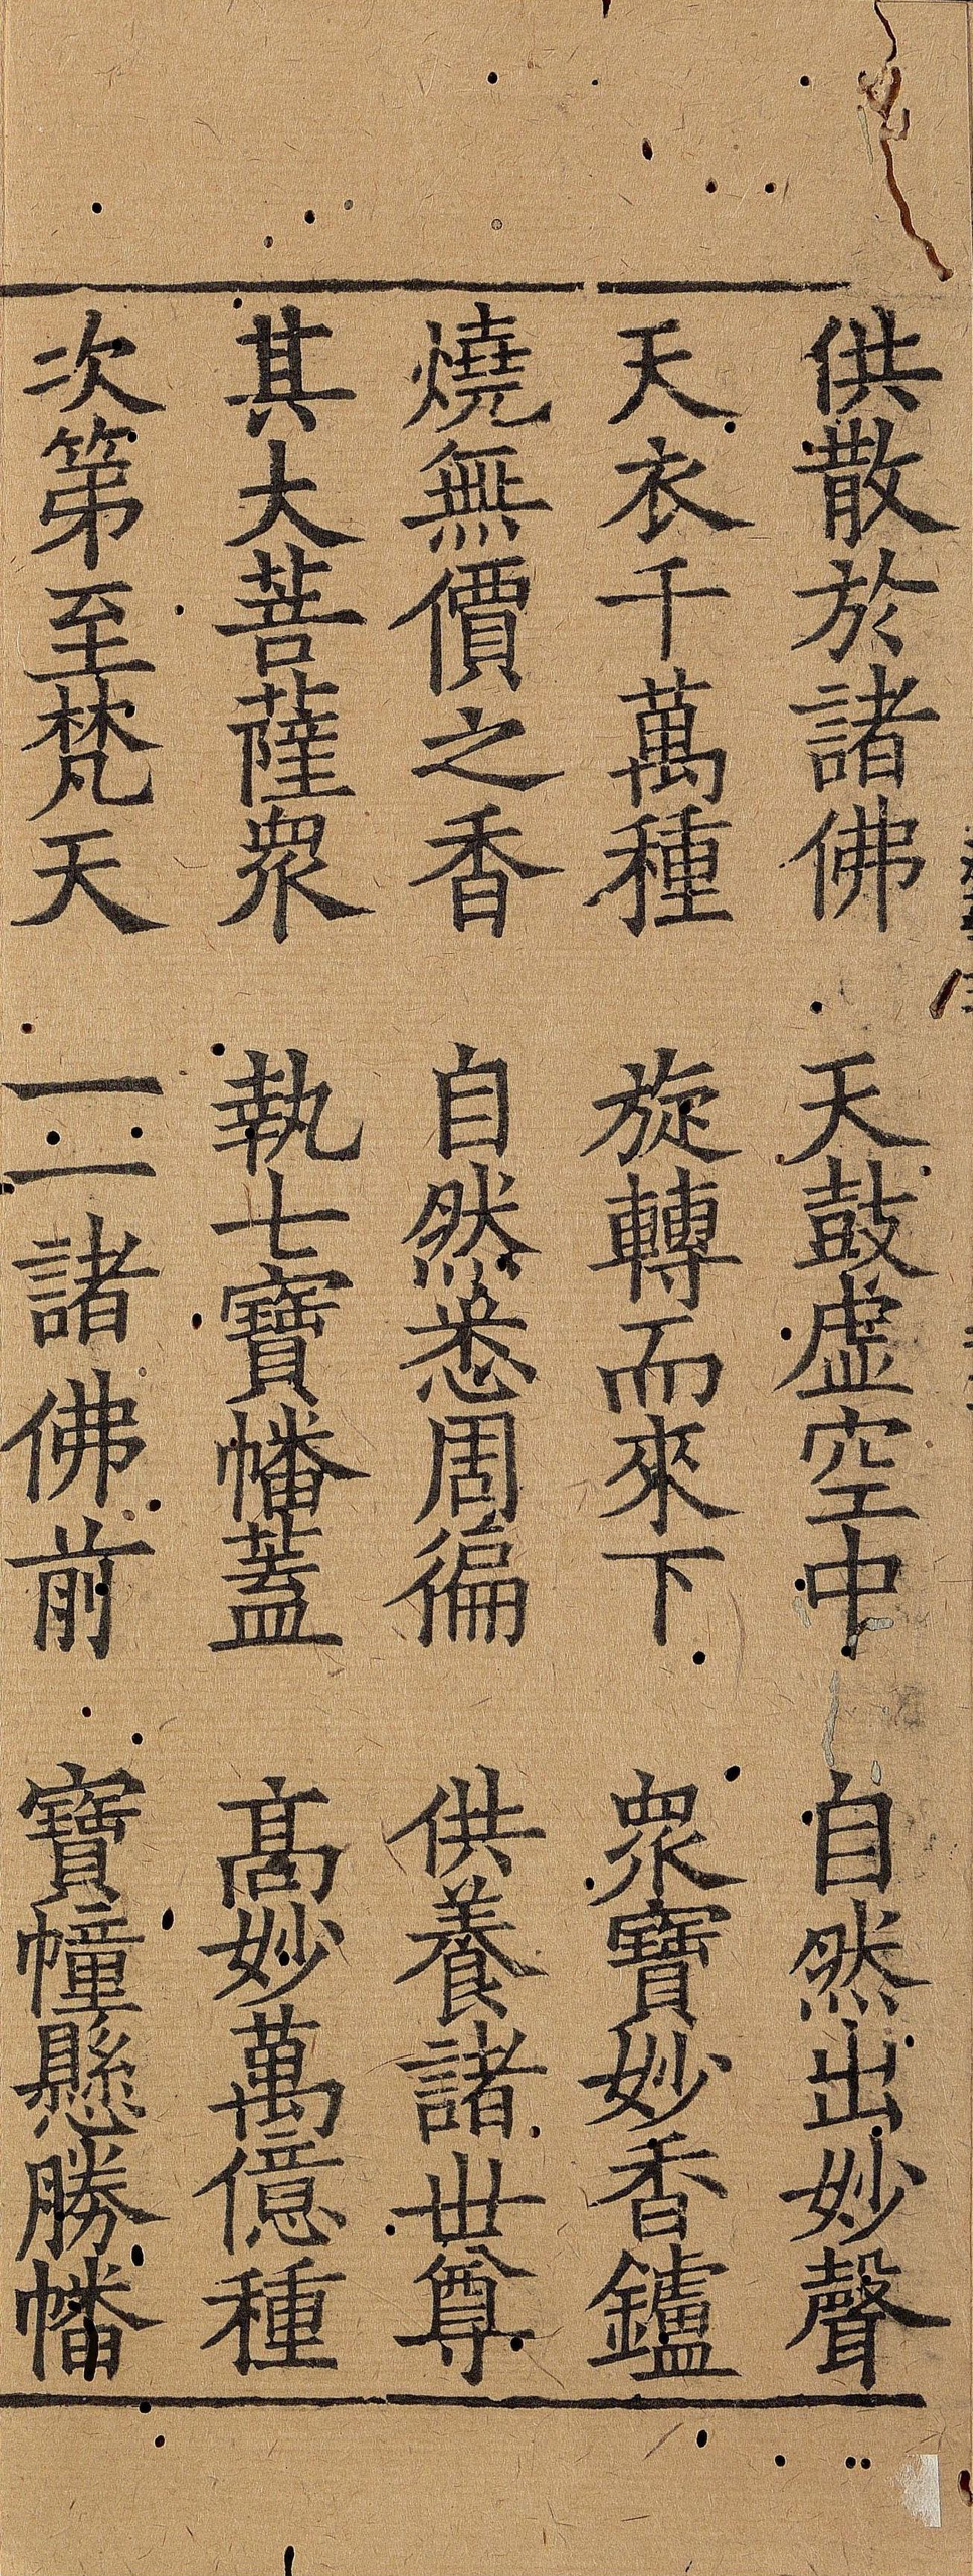 供散於諸佛　天鼓虛空中　自然出妙聲
天衣千萬種　旋轉而來下　眾寶妙香鑪
燒無價之香　自然悉周徧　供養諸世尊
其大菩薩眾　執七寶幡蓋　高妙萬億種
次第至梵天　一一諸佛前　寶幢懸勝幡